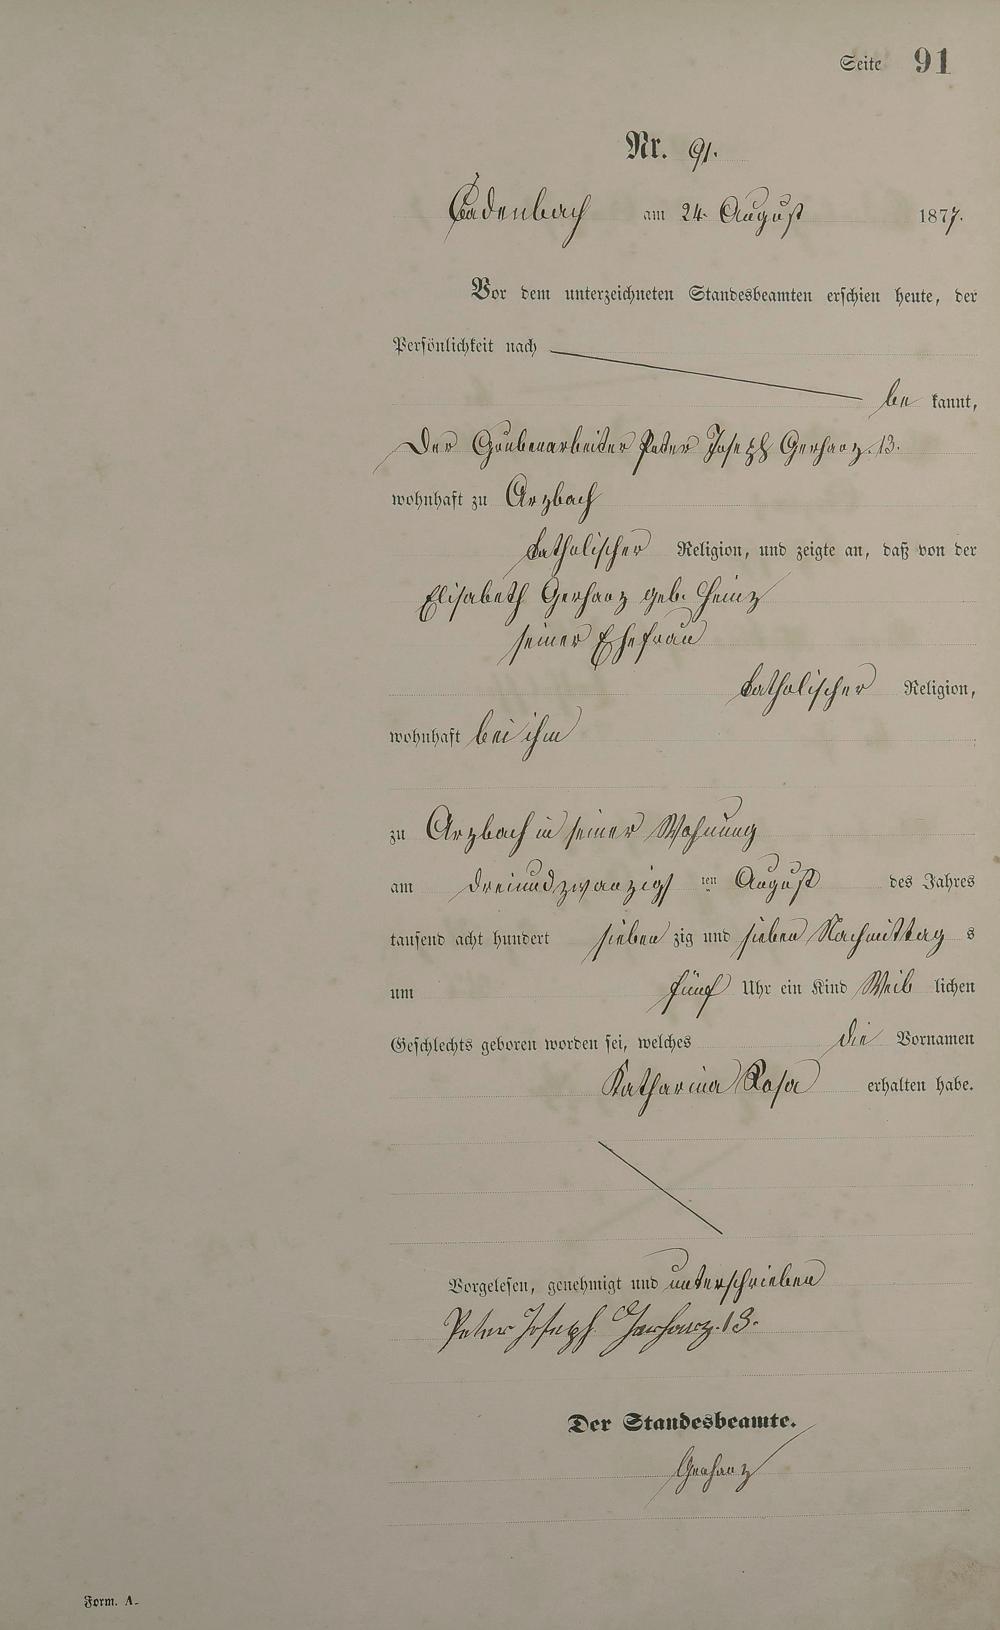 Seite 91
Nr. 91.
Cadenbach am 24. August 1877.
Vor dem unterzeichneten Standesbeamten erschien heute, der
Persönlichkeit nach
be kannt,
Der Grubenarbeiter Peter Joseph Gerharz. 13.
wohnhaft zu Arzbach
katholischer Religion, und zeigte an, daß von der
Elisabeth Gerharz geb. Heinz
seiner Ehefrau
katholischer Religion,
wohnhaft bei ihm
zu Arzbach in seiner Wohnung
am dreiundzwanzigs ten August des Jahres
tausend acht hundert sieben zig und sieben Nachmittag s
um fünf Uhr ein Kind Weib lichen
Geschlechts geboren worden sei, welches die Vornamen
Katharina Rosa erhalten habe.
Vorgelesen, genehmigt und unterschrieben
Peter Joseph Gerharz. 13.
Der Standesbeamte.
Gerharz
Form. A.